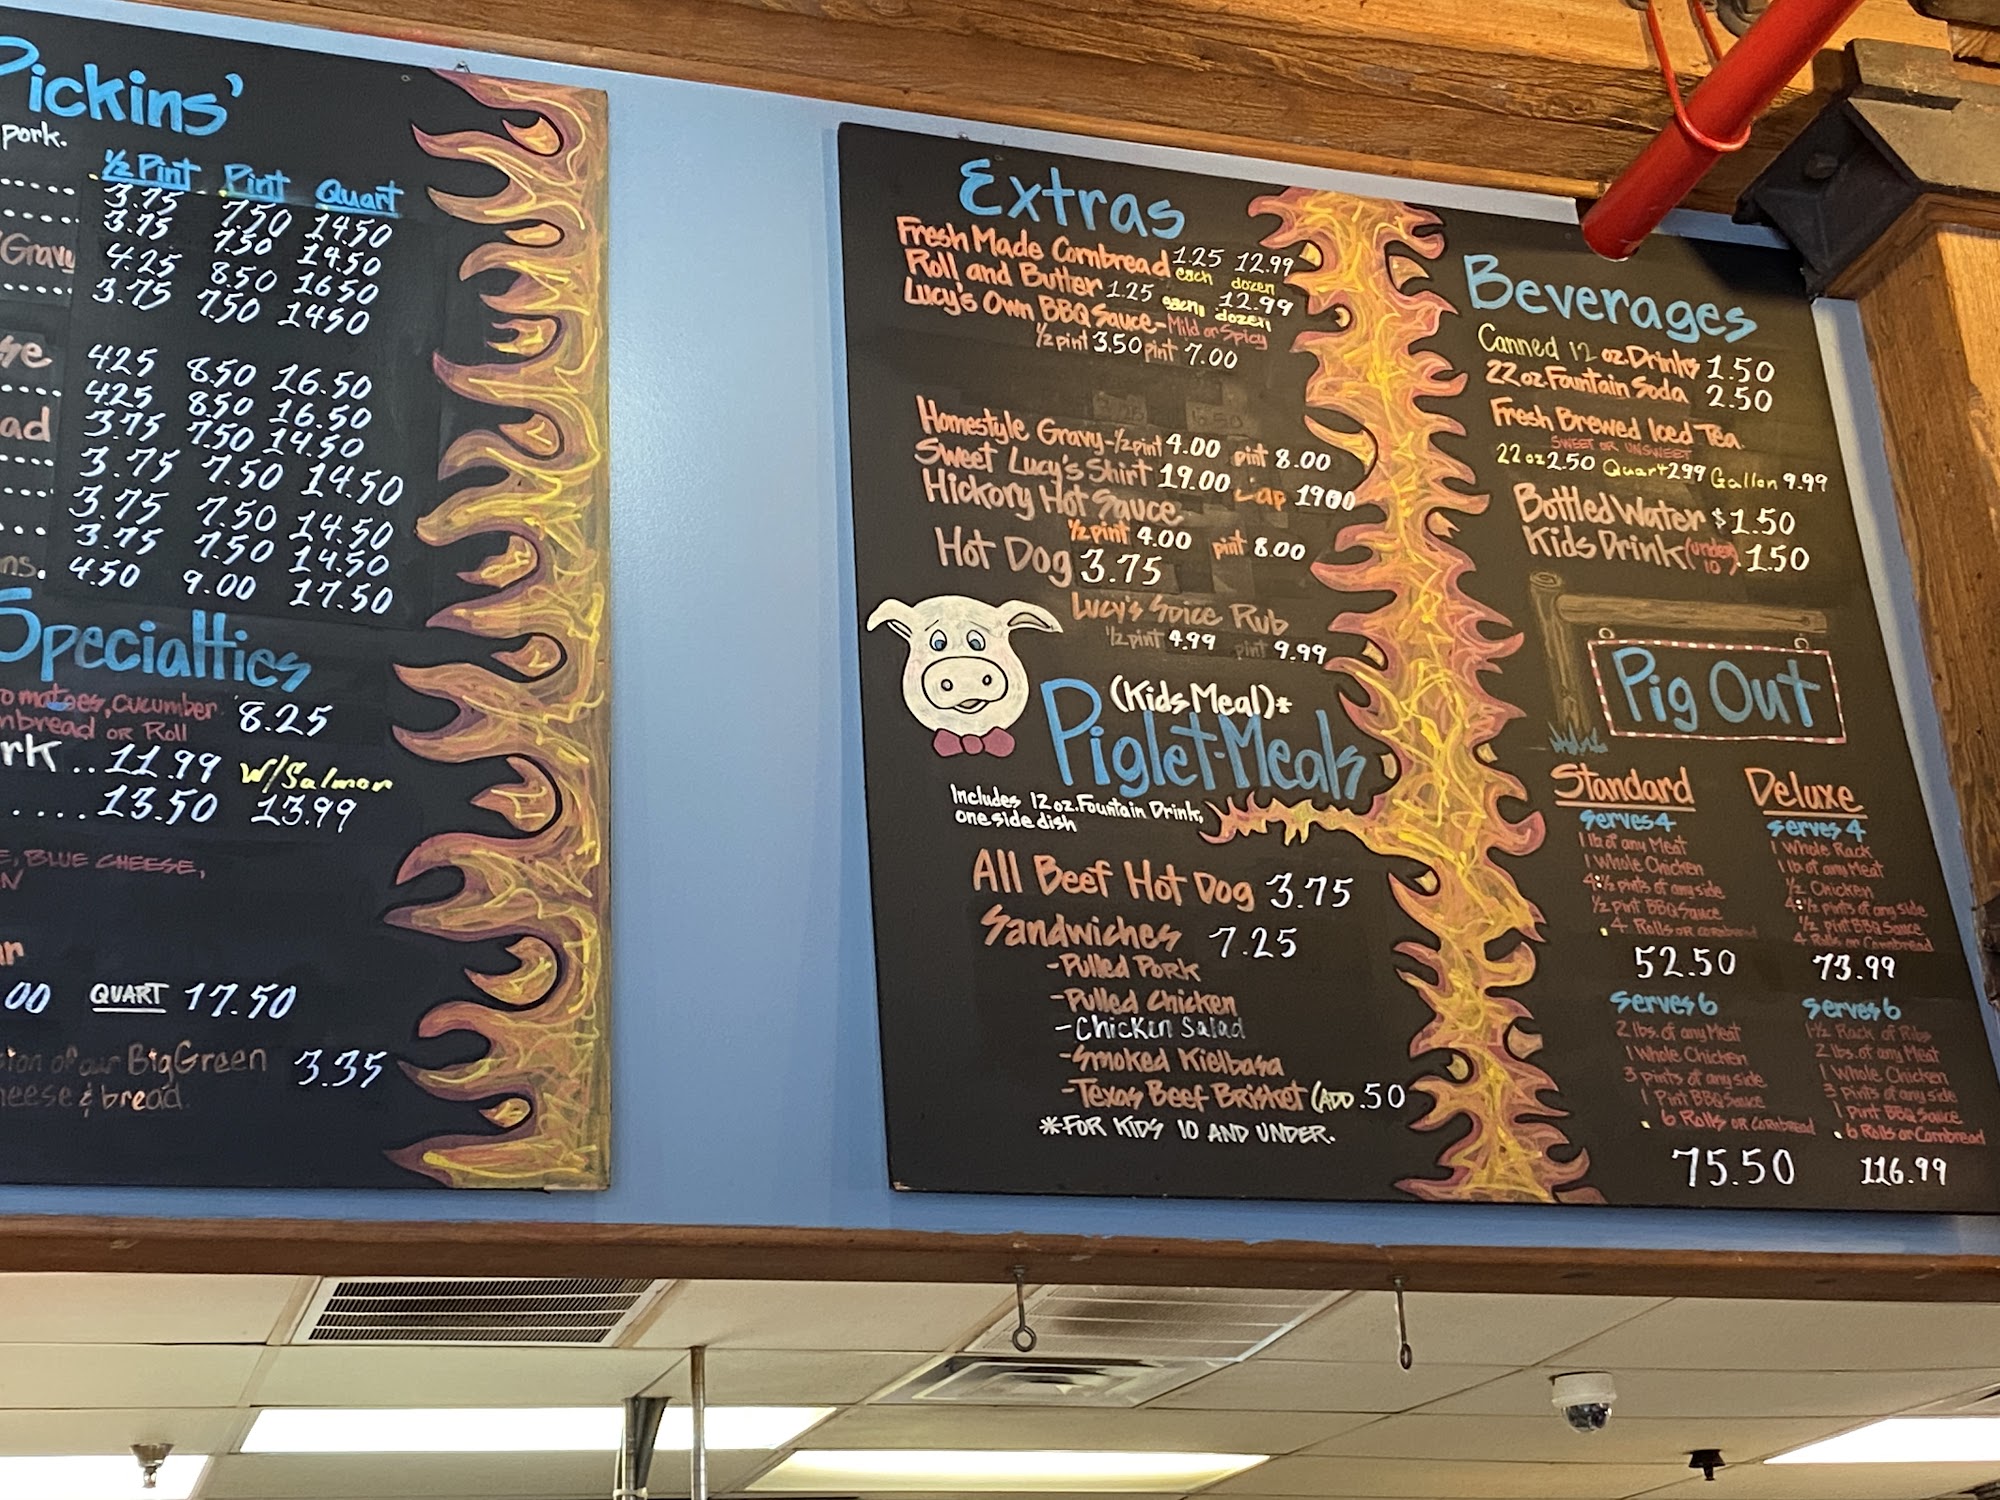 Pickins'
pork.
½ Pint Pint Quart
3.75 7.50 14.50
3.75 7.50 14.50
Gravy 4.25 8.50 16.50
3.75 7.50 14.50
425 8.50 16.50
425 8.50 16.50
3.75 7.50 14.50
3.75 7.50 14.50
3.75 7.50 14.50
3.75 7.50 14.50
4.50 9.00 17.50
Specialties
omatoes, cucumber 8.25
nbread or Roll
rk ..11.99 w/Salmon
.....13.50 13.99
E, BLUE CHEESE,
N
ar
00 QUART 17.50
sion of our Big Green 3.35
heese & bread.
Extras
Fresh Made Cornbread 1.25 12.99
each dozen
Roll and Butter 1.25 each, 12.99
dozen
Lucy's Own BBQ Sauce-Mild or Spicy
½ pint 3.50 pint 7.00
Homestyle Gravy-½ pint 4.00 pint 8.00
Sweet Lucy's Shirt 19.00 Cap 1900
Hickory Hot Sauce
½ pint 4.00 pint 8.00
Hot Dog 3.75
Lucy's Spice Rub
½ pint 4.99 pint 9.99
(Kids Meal)*
Piglet-Meals
Includes 12 oz. Fountain Drink,
one side dish
All Beef Hot Dog 3.75
Sandwiches 7.25
-Pulled Pork
-Pulled Chicken
-Chicken Salad
-Smoked Kielbasa
-Texas Beef Brisket (ADD .50
*FOR KIDS 10 AND UNDER.
Beverages
Canned 12 oz. Drinks 1.50
22 oz. Fountain Soda 2.50
Fresh Brewed Iced Tea.
SWEET OR UNSWEET
22 oz 2.50 Quart 2.99 Gallon 9.99
Bottled Water $1.50
Kids Drink (under 10) 1.50
Pig Out
Standard
serves 4
1 lb of any Meat
1 Whole Chicken
4:½ pints of any side
½ pint BBQ Sauce
4 Rolls or cornbread
52.50
serves 6
2 lbs. of any Meat
1 Whole Chicken
3 pints of any side
1 Pint BBQ Sauce
6 Rolls or Cornbread
75.50
Deluxe
serves 4
1 Whole Rack
1 lb of any Meat
½ Chicken
4:½ pints of any side
½ pint BBQ Sauce
4 Rolls or Cornbread
73.99
serves 6
1-½ Rack of Ribs
2 lbs. of any Meat
1 Whole Chicken
3 pints of any side
1 pint BBQ Sauce
6 Rolls or Cornbread
116.99